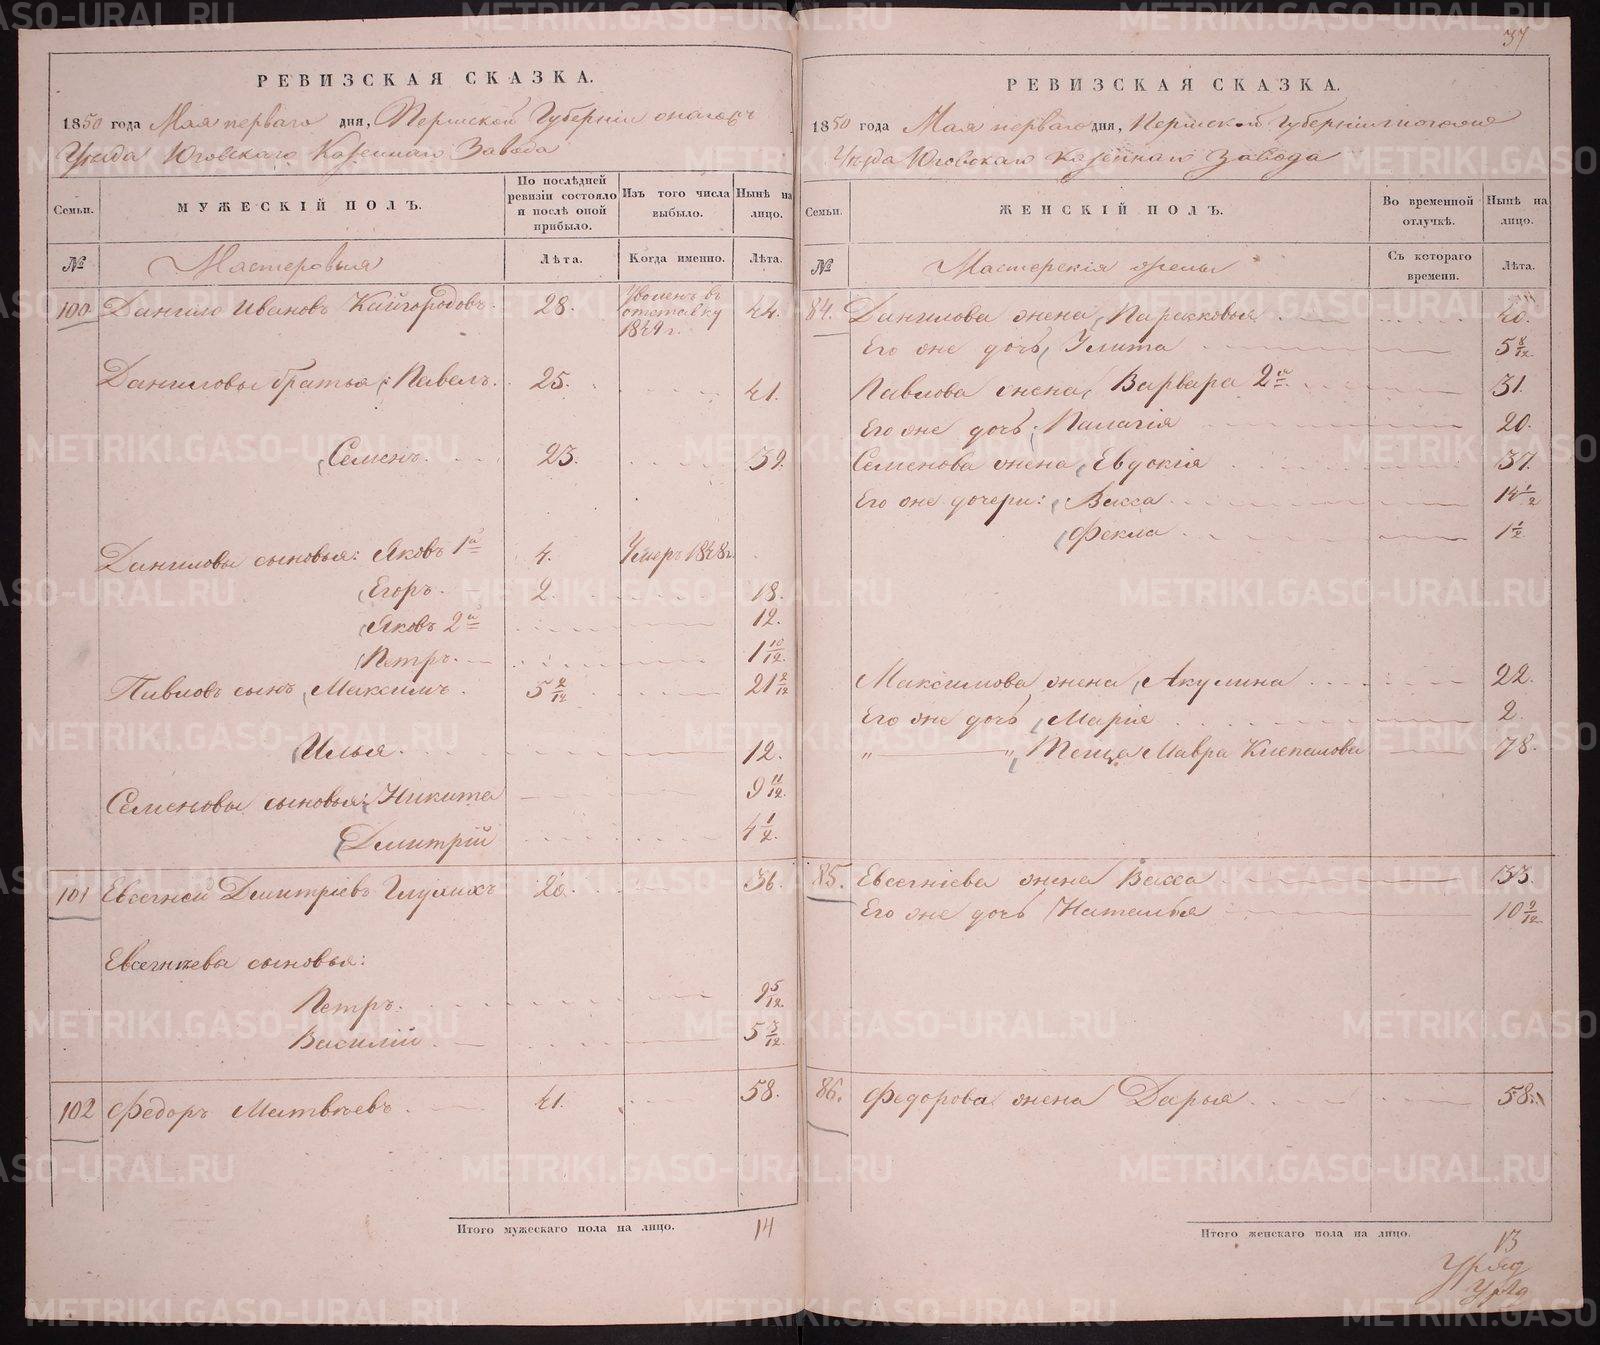 РЕВИЗСКАЯ СКАЗКА.
1850 года Мая перваго дня, Пермской Губернiи онагожъ
Уѣзда Юговскаго Казеннаго Завода
Семьи.
МУЖЕСКIЙ ПОЛЪ.
По послѣдней ревизiи состояло и послѣ оной прибыло.
Изъ того числа выбыло.
Нынѣ на лицо.
№
Мастеровыя
Лѣта.
Когда именно.
Лѣта.
100 Данило Ивановъ Кайгородовъ. 28. Уволенъ въ отставку 1849 г. 44.
Даниловы братья: Павелъ. 25. 41.
Семенъ. 23. 39.
Даниловы сыновья: Яковъ 1й 4. Умеръ 1848 г.
Егоръ. 2. 18.
Яковъ 2й 12.
Петръ. 1 10/12.
Павловъ сынъ, Максимъ. 5 2/12 21 2/12
Илья. 12.
Семеновы сыновья: Никита 9 11/12.
Дмитрiй 4 1/2.
101 Евсегней Дмитрiевъ Глумихъ 20. 36.
Евсегнѣева сыновья:
Петръ. 9 5/12.
Василiй. 5 3/12.
102 Федоръ Матвѣевъ. 41. 58.
Итого мужескаго пола на лицо. 14
37
РЕВИЗСКАЯ СКАЗКА.
1850 года Мая перваго дня, Пермской Губернiи
Уѣзда Юговскаго Казеннаго Завода
Семьи.
ЖЕНСКIЙ ПОЛЪ.
Во временной отлучкѣ.
Нынѣ на лицо.
№
Мастерскiя жены
Съ котораго времени.
Лѣта.
84. Данилова жена, Парасковья 40.
Его же дочь, Улита 5 8/12.
Павлова жена, Варвара 2я 31.
Его же дочь, Палагiя 20.
Семенова жена, Евдокiя 37.
Его же дочери: Васса 14 1/2
Фекла 1 1/2.
Максимова жена, Акулина 22.
Его же дочь, Марiя 2.
" — " Теща Мавра 78.
85. Евсегнiева жена Васса 33.
Его же дочь Наталья 10 9/12.
86. Федорова жена Дарья 58.
Итого женскаго пола на лицо. 13
METRIKI.GASO-URAL.RU